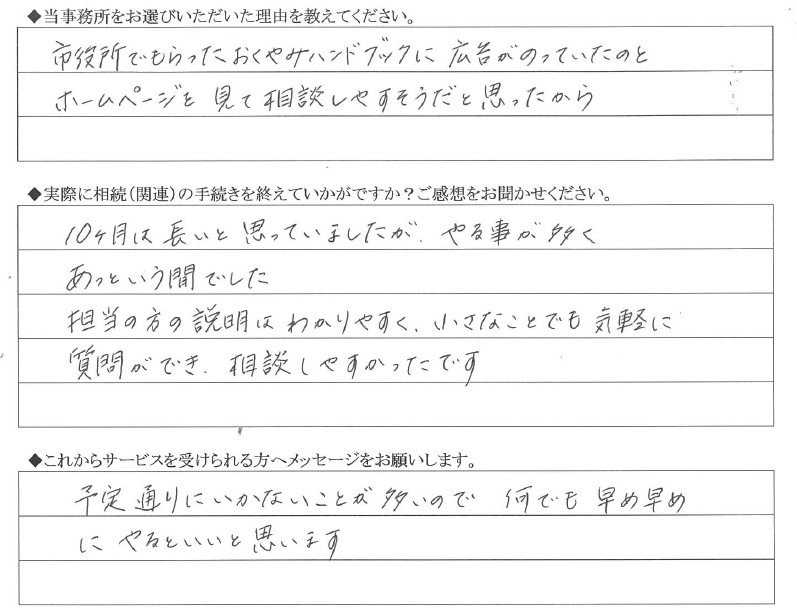 ◆当事務所をお選びいただいた理由を教えてください。
市役所でもらったおくやみハンドブックに広告がのっていたのと
ホームページを見て相談しやすそうだと思ったから
◆実際に相続(関連)の手続きを終えていかがですか?ご感想をお聞かせください。
10ヶ月は長いと思っていましたが、やる事が多く
あっという間でした
担当の方の説明はわかりやすく、小さなことでも気軽に
質問ができ、相談しやすかったです
◆これからサービスを受けられる方へメッセージをお願いします。
予定通りにいかないことが多いので 何でも早め早め
にやるといいと思います